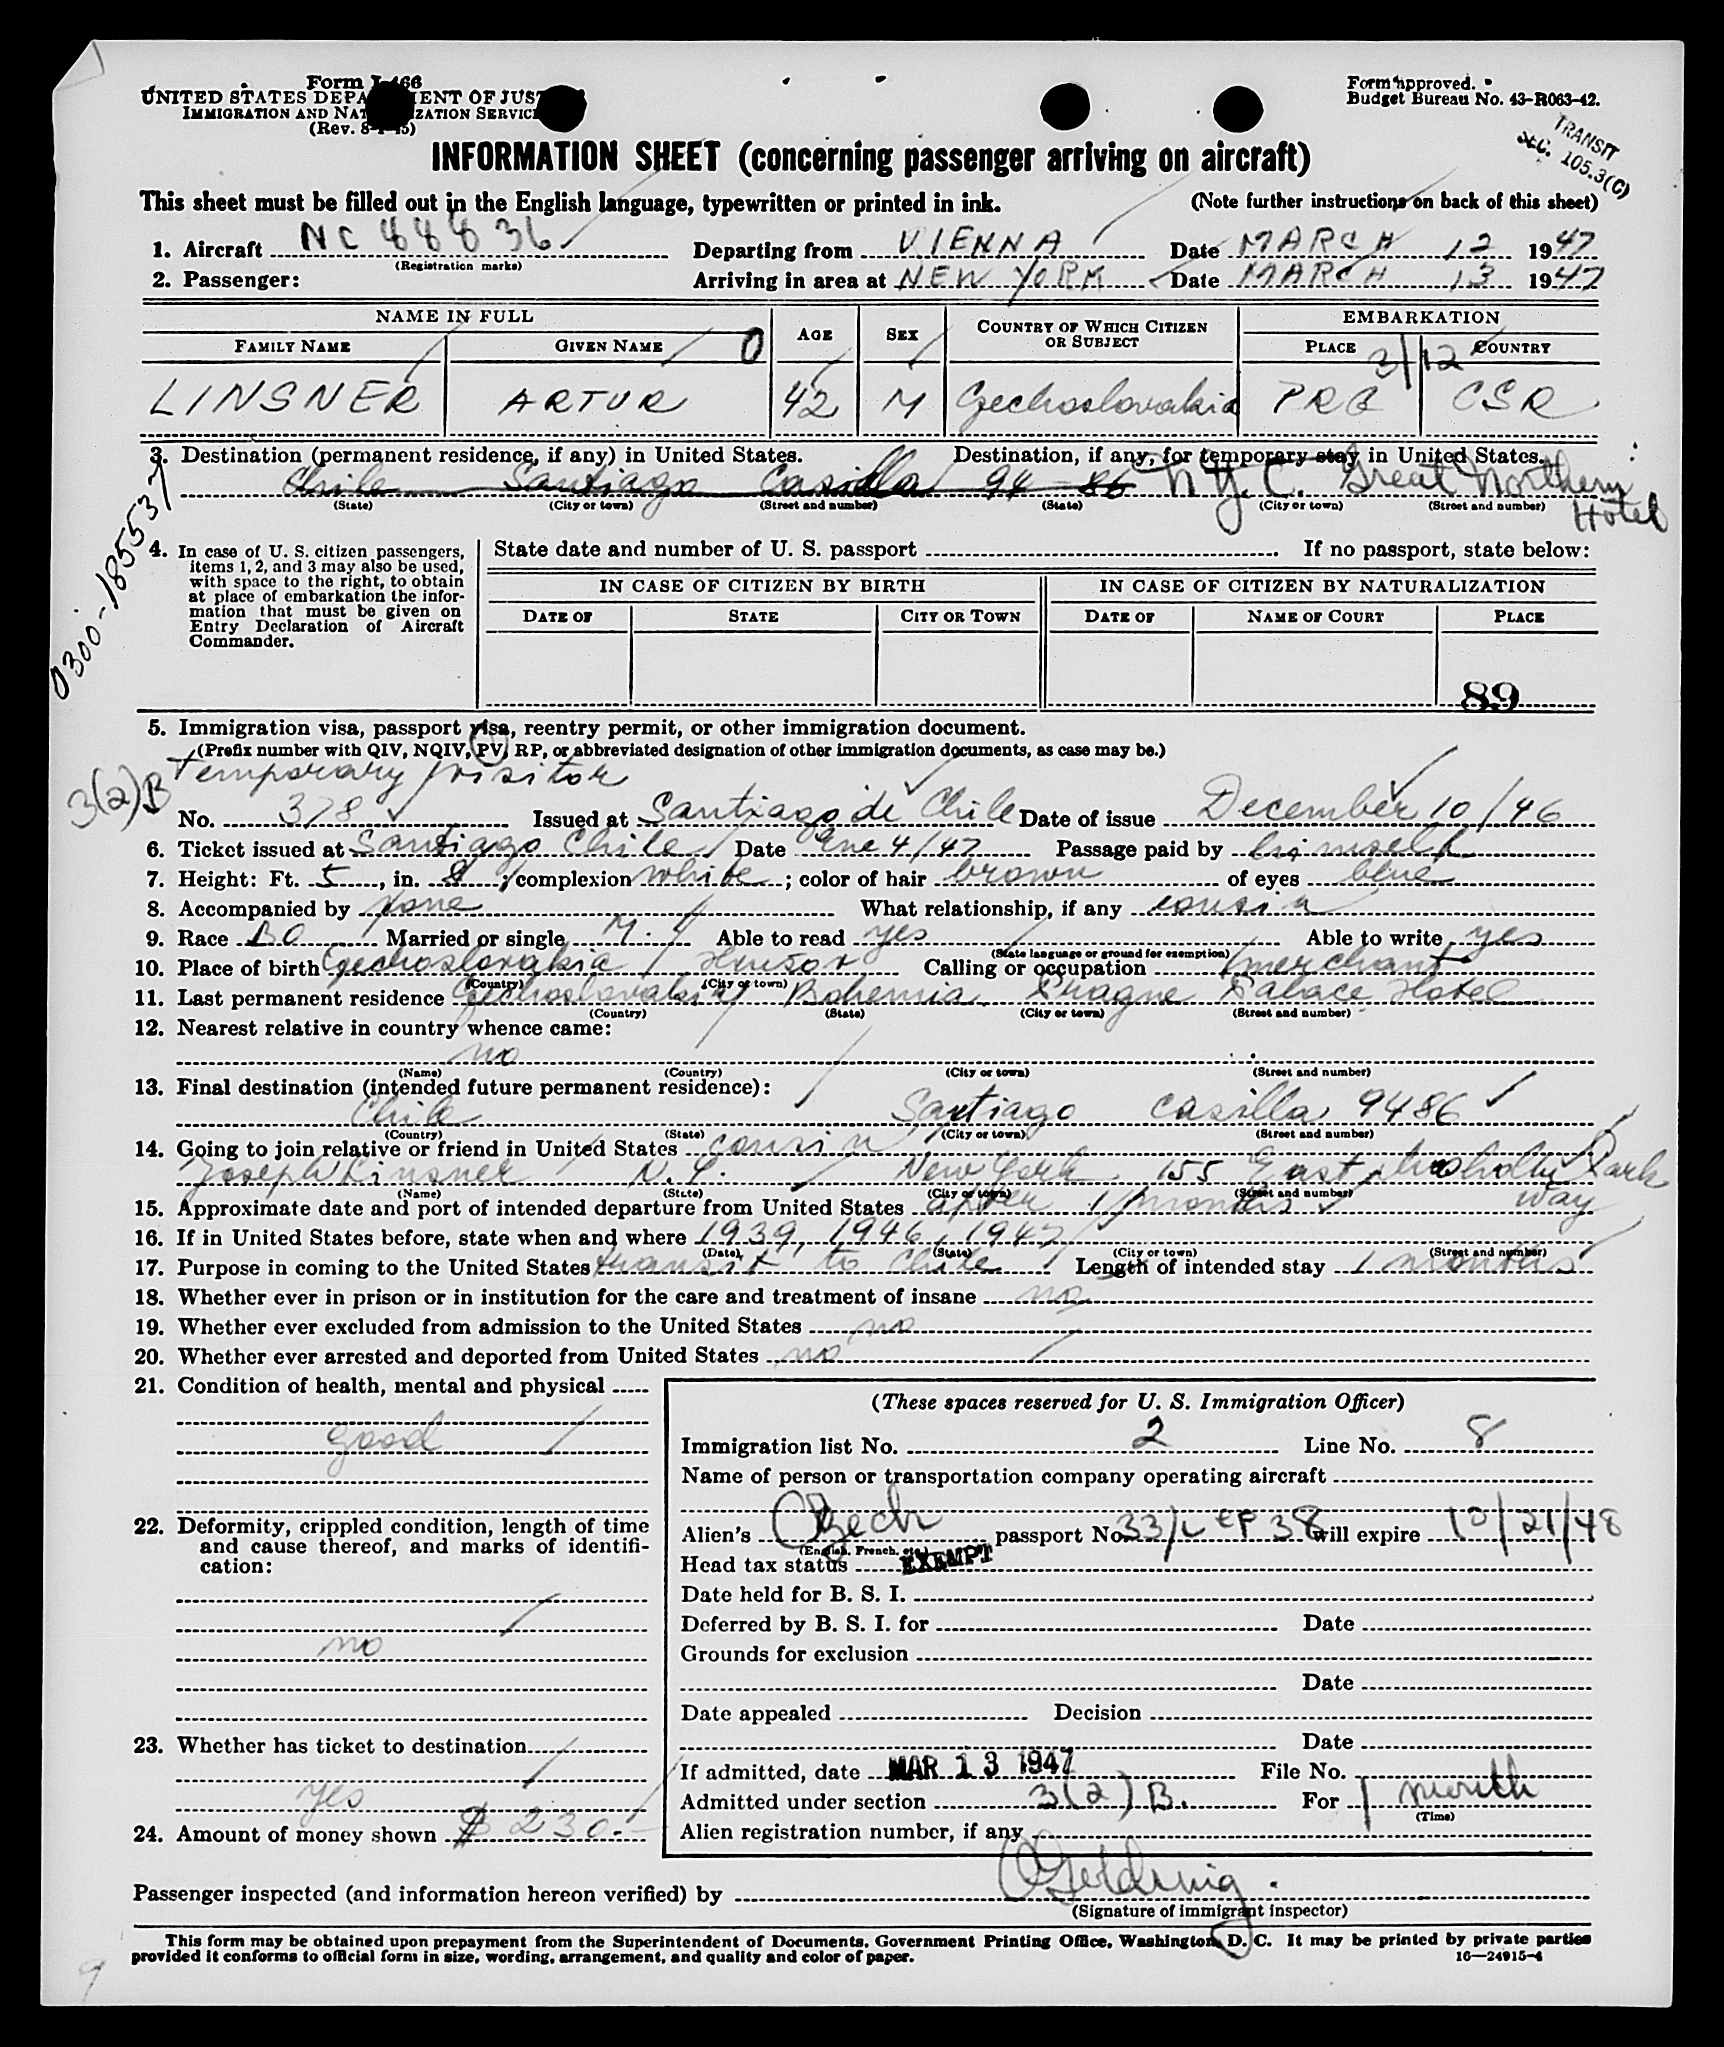 Form I-466
UNITED STATES DEPARTMENT OF JUSTICE
IMMIGRATION AND NATURALIZATION SERVICE
(Rev. 8-1-45)
Form approved.
Budget Bureau No. 43-R063-42.
TRANSIT
Sec. 105.3(C)
INFORMATION SHEET (concerning passenger arriving on aircraft)
This sheet must be filled out in the English language, typewritten or printed in ink. (Note further instructions on back of this sheet)
1. Aircraft NC 88836 Departing from VIENNA Date MARCH 12 1947
(Registration marks)
2. Passenger: Arriving in area at NEW YORK Date MARCH 13 1947
NAME IN FULL AGE SEX COUNTRY OF WHICH CITIZEN OR SUBJECT EMBARKATION
FAMILY NAME GIVEN NAME 0 PLACE COUNTRY
3/12
LINSNER ARTUR 42 M Czechoslovakia PRG CSR
3. Destination (permanent residence, if any) in United States. Destination, if any, for temporary stay in United States.
Chile Santiago Casilla 94 86 N.Y.C. Great Northern Hotel
(State) (City or town) (Street and number) (State) (City or town) (Street and number)
0300-185537
4. In case of U. S. citizen passengers, items 1, 2, and 3 may also be used, with space to the right, to obtain at place of embarkation the information that must be given on Entry Declaration of Aircraft Commander.
State date and number of U. S. passport If no passport, state below:
IN CASE OF CITIZEN BY BIRTH IN CASE OF CITIZEN BY NATURALIZATION
DATE OF STATE CITY OR TOWN DATE OF NAME OF COURT PLACE
89
5. Immigration visa, passport visa, reentry permit, or other immigration document.
(Prefix number with QIV, NQIV, PV, RP, or abbreviated designation of other immigration documents, as case may be.)
Temporary visitor
3(2)B
No. 378 Issued at Santiago de Chile Date of issue December 10/46
6. Ticket issued at Santiago Chile Date Ene 4/47 Passage paid by himself
7. Height: Ft. 5, in. 8; complexion white; color of hair brown of eyes blue
8. Accompanied by none What relationship, if any cousin
9. Race BO Married or single M. Able to read yes Able to write yes
(State language or ground for exemption)
10. Place of birth Czechoslovakia Calling or occupation merchant
(Country) (City or town)
11. Last permanent residence Czechoslovakia Bohemia Prague Palace Hotel
(Country) (State) (City or town) (Street and number)
12. Nearest relative in country whence came:
no
(Name) (Country) (City or town) (Street and number)
13. Final destination (intended future permanent residence):
Chile Santiago casilla 9486
(Country) (State) (City or town) (Street and number)
14. Going to join relative or friend in United States cousin
Joseph Linsner N.Y. New York 155 East Mosholu Park way
(Name) (State) (City or town) (Street and number)
15. Approximate date and port of intended departure from United States after 1 months
16. If in United States before, state when and where 1939, 1946, 1947
(Date) (State) (City or town) (Street and number)
17. Purpose in coming to the United States transit to Chile Length of intended stay 1 months
18. Whether ever in prison or in institution for the care and treatment of insane no
19. Whether ever excluded from admission to the United States no
20. Whether ever arrested and deported from United States no
21. Condition of health, mental and physical
good
22. Deformity, crippled condition, length of time and cause thereof, and marks of identification:
no
23. Whether has ticket to destination
yes
24. Amount of money shown $ 230.-
(These spaces reserved for U. S. Immigration Officer)
Immigration list No. 2 Line No. 8
Name of person or transportation company operating aircraft
Alien's Czech passport No. will expire 10/21/48
(English, French, etc.)
Head tax status EXEMPT
Date held for B. S. I.
Deferred by B. S. I. for Date
Grounds for exclusion
Date
Date appealed Decision
Date
If admitted, date MAR 13 1947 File No.
Admitted under section 3(2)B. For 1 month
(Time)
Alien registration number, if any
Passenger inspected (and information hereon verified) by
(Signature of immigrant inspector)
This form may be obtained upon prepayment from the Superintendent of Documents, Government Printing Office, Washington, D. C. It may be printed by private parties
provided it conforms to official form in size, wording, arrangement, and quality and color of paper. 16—24915-4
9